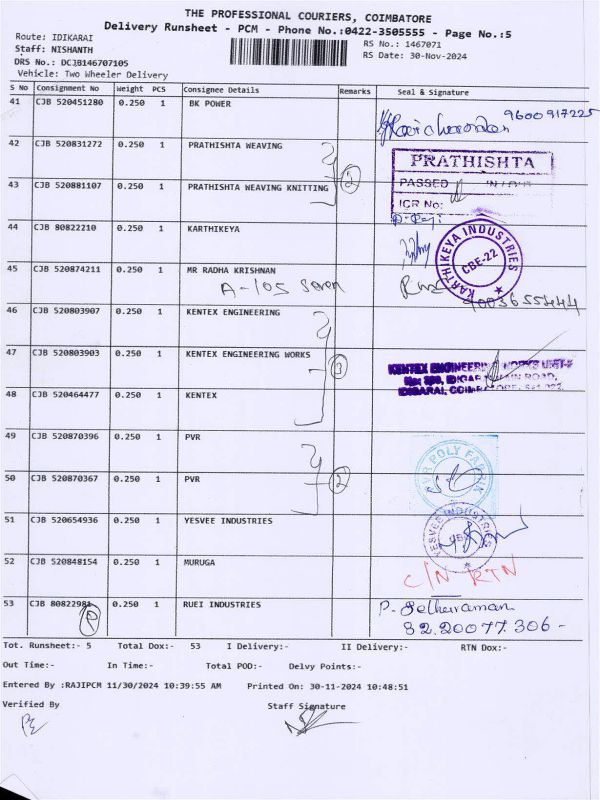 THE PROFESSIONAL COURIERS, COIMBATORE
Delivery Runsheet - PCM - Phone No.:0422-3505555 - Page No.:5
Route: IDIKARAI
RS No.: 1467071
Staff: NISHANTH
RS Date: 30-Nov-2024
DRS No.: DCJB146707105
Vehicle: Two Wheeler Delivery
S No Consignment No Weight PCS Consignee Details Remarks Seal & Signature
41 CJB 520451280 0.250 1 BK POWER
9600917225
42 CJB 520831272 0.250 1 PRATHISHTA WEAVING
PRATHISHTA
43 CJB 520881107 0.250 1 PRATHISHTA WEAVING KNITTING 2
PASSED
ICR No:
44 CJB 80822210 0.250 1 KARTHIKEYA
KARTHIKEYA INDUSTRIES
CBE-22
45 CJB 520874211 0.250 1 MR RADHA KRISHNAN
A-105
46 CJB 520803907 0.250 1 KENTEX ENGINEERING
47 CJB 520803903 0.250 1 KENTEX ENGINEERING WORKS 3
KENTEX ENGINEERING WORKS UNIT-
48 CJB 520464477 0.250 1 KENTEX
49 CJB 520870396 0.250 1 PVR
PVR POLY FABRIK
50 CJB 520870367 0.250 1 PVR 2
51 CJB 520654936 0.250 1 YESVEE INDUSTRIES
YESVEE INDUSTRIES
52 CJB 520848154 0.250 1 MURUGA
C/N RTN
53 CJB 80822981 0.250 1 RUEI INDUSTRIES
R
82.20077.306-
Tot. Runsheet:- 5 Total Dox:- 53 I Delivery:- II Delivery:- RTN Dox:-
Out Time:- In Time:- Total POD:- Delvy Points:-
Entered By :RAJIPCM 11/30/2024 10:39:55 AM Printed On: 30-11-2024 10:48:51
Verified By Staff Signature